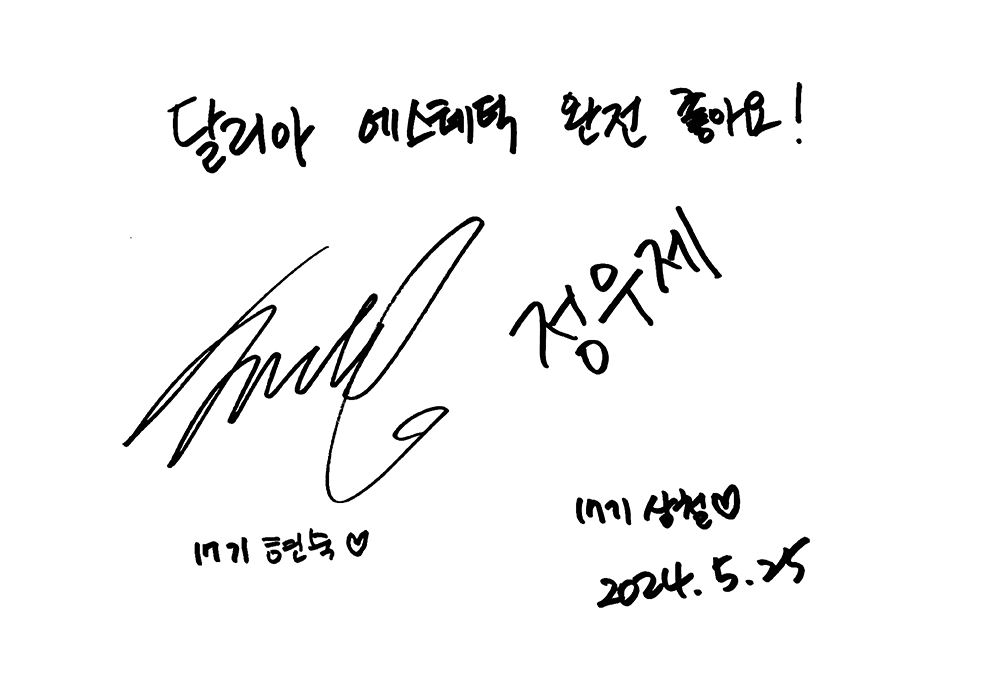 달리아 에스테틱 완전 좋아요!
정우제
17기 상철♡
17기 현숙♡
2024.5.25